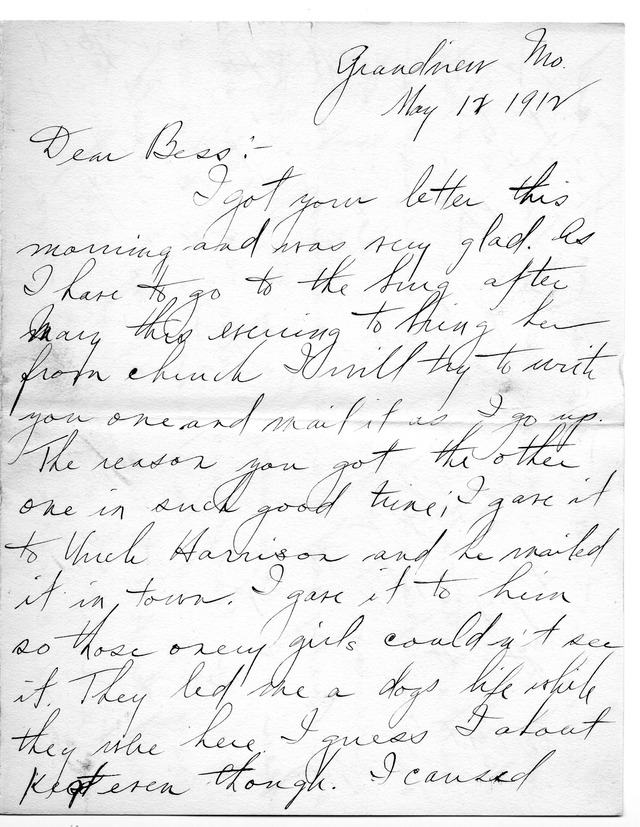 Grandview Mo.
May 12 1912
Dear Bess:-
I got your letter this
morning and was very glad. As
I have to go to the burg after
Mary this evening to bring her
from church I will try to write
you one and mail it as I go up.
The reason you got the other
one in such good time; I gave it
to Uncle Harrison and he mailed
it in town. I gave it to him
so those onery girls couldn't see
it. They led me a dogs life while
they were here. I guess I about
kept even though. I caused